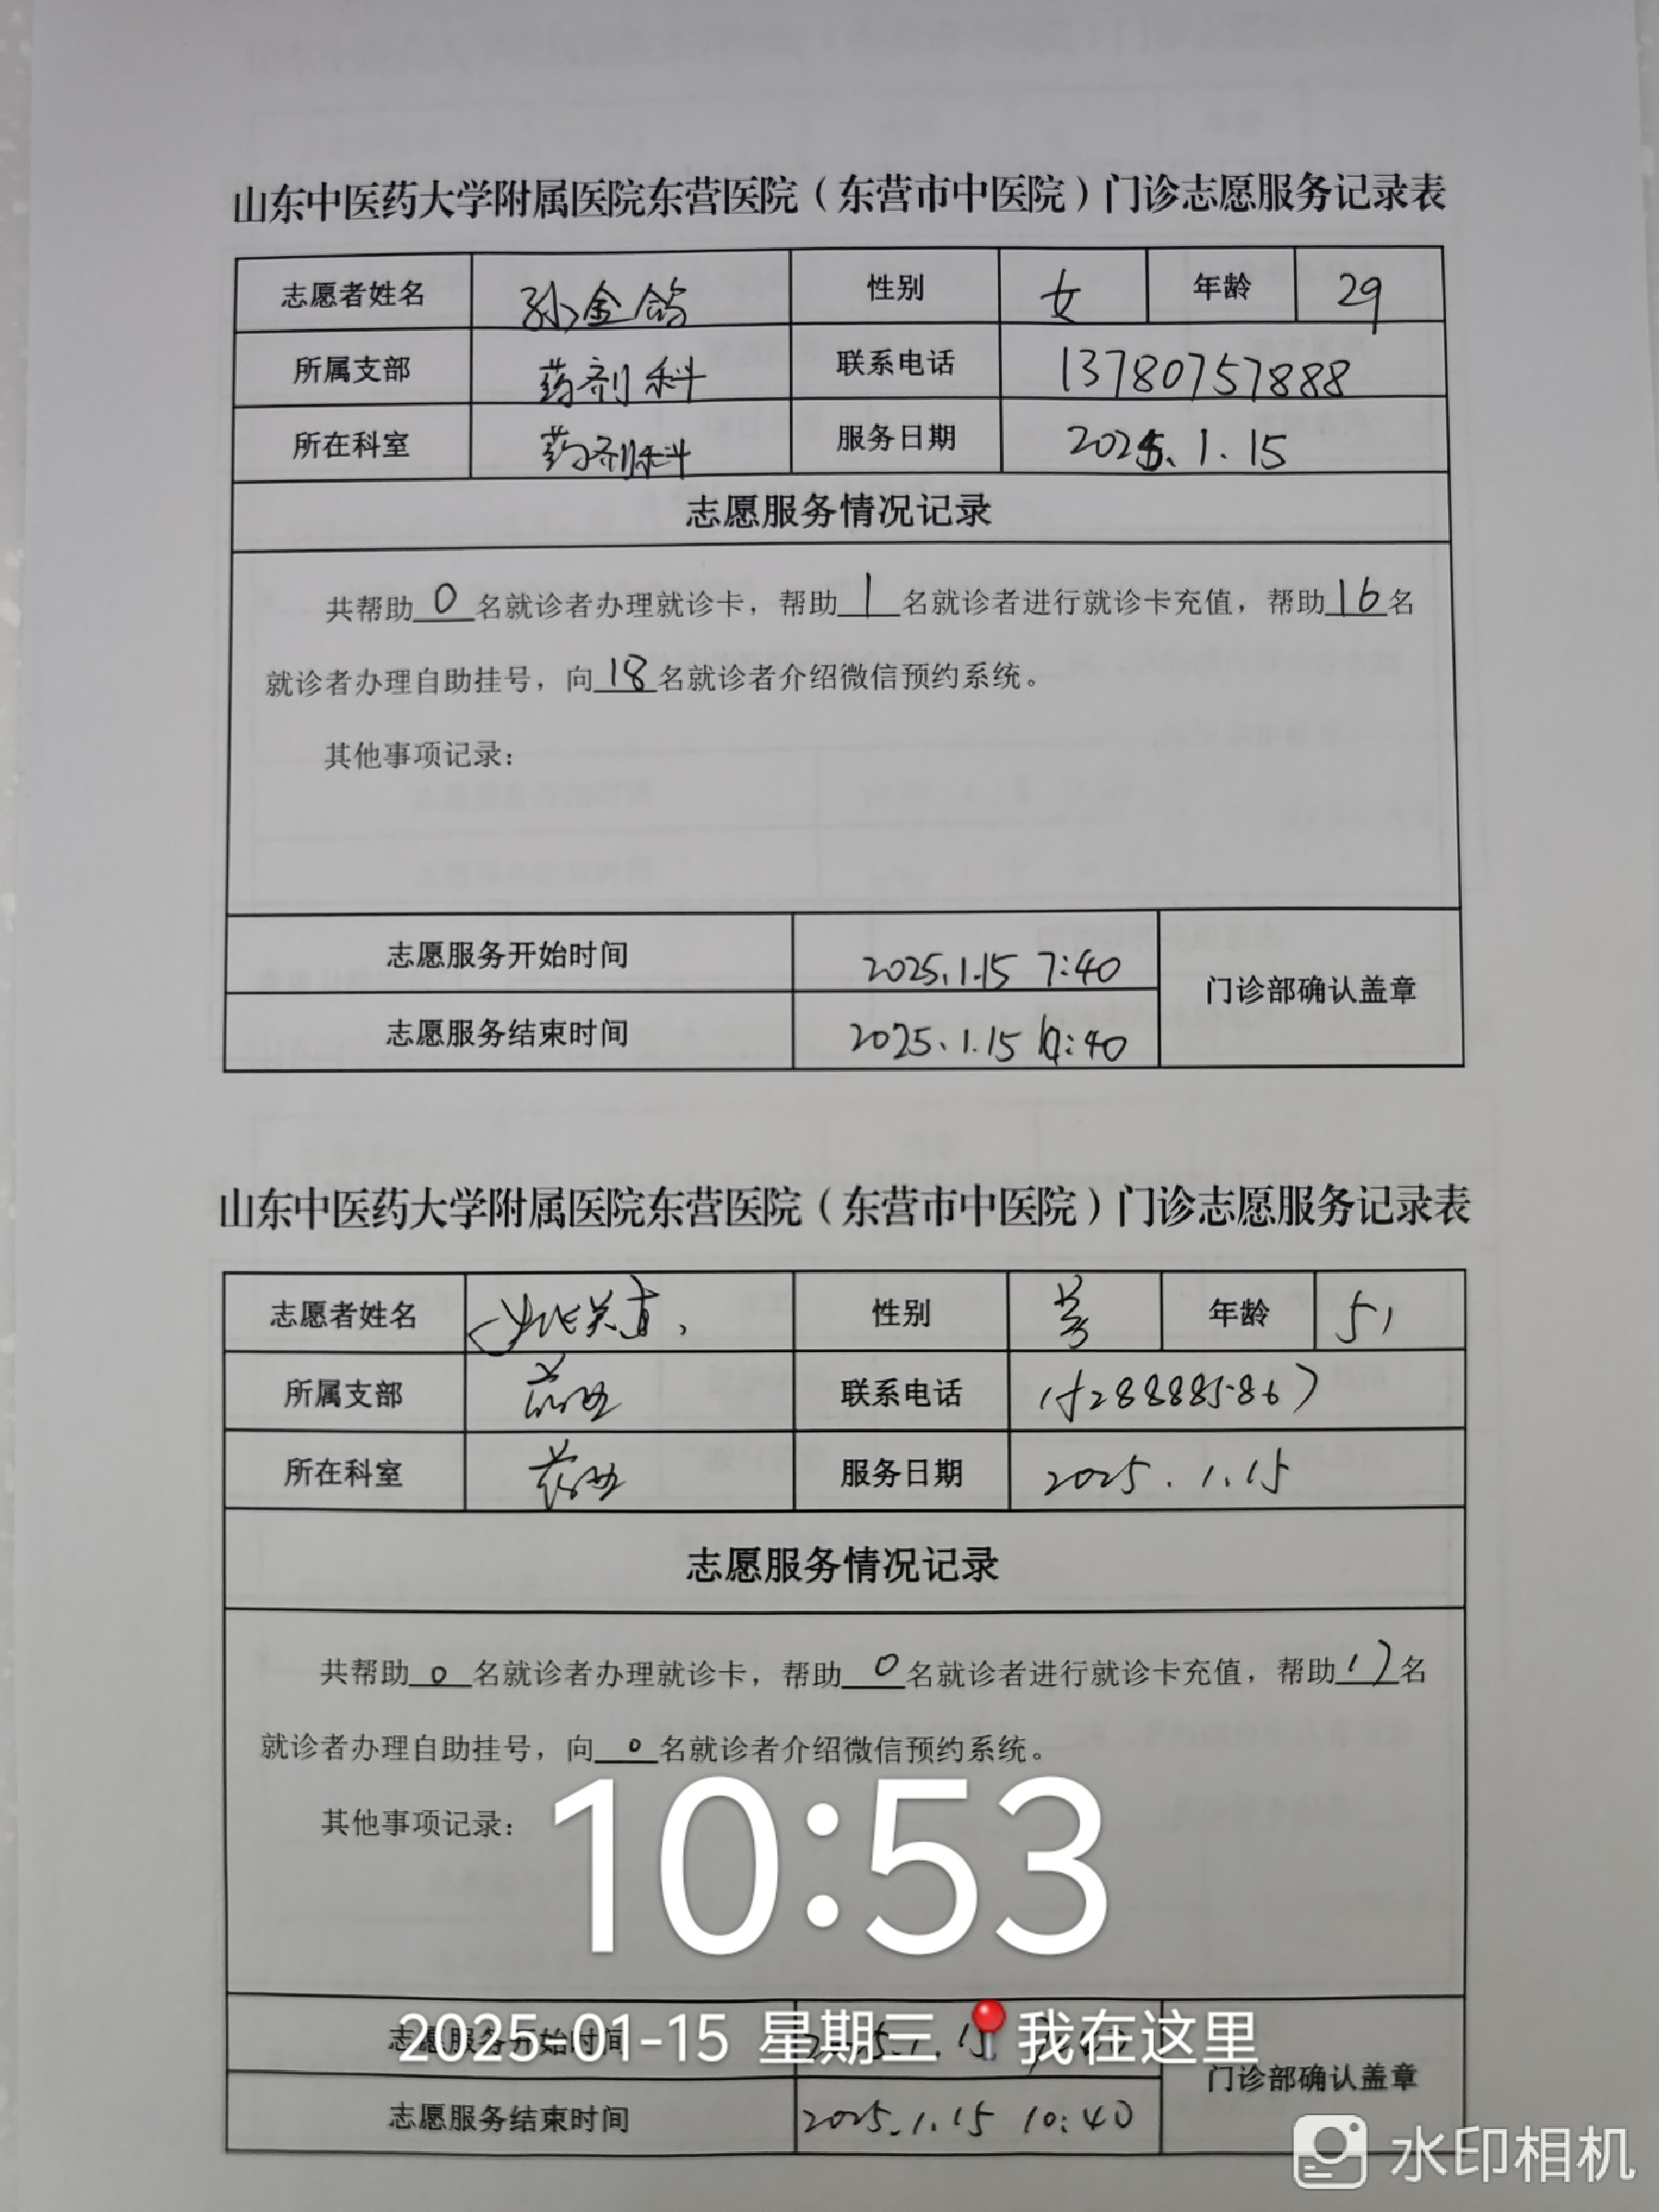 山东中医药大学附属医院东营医院（东营市中医院）门诊志愿服务记录表
志愿者姓名 孙金鸽 性别 女 年龄 29
所属支部 药剂科 联系电话 13780757888
所在科室 药剂科 服务日期 2025.1.15
志愿服务情况记录
共帮助0名就诊者办理就诊卡，帮助1名就诊者进行就诊卡充值，帮助16名
就诊者办理自助挂号，向18名就诊者介绍微信预约系统。
其他事项记录：
志愿服务开始时间 2025.1.15 7:40
门诊部确认盖章
志愿服务结束时间 2025.1.15 10:40
山东中医药大学附属医院东营医院（东营市中医院）门诊志愿服务记录表
志愿者姓名 性别 年龄 51
所属支部 联系电话
所在科室 服务日期 2025.1.15
志愿服务情况记录
共帮助0名就诊者办理就诊卡，帮助0名就诊者进行就诊卡充值，帮助17名
就诊者办理自助挂号，向0名就诊者介绍微信预约系统。
其他事项记录：
10:53
志愿服务开始时间 2025.1.15
2025-01-15 星期三 我在这里
门诊部确认盖章
志愿服务结束时间 2025.1.15 10:40
水印相机